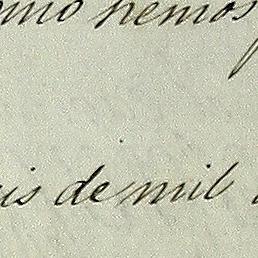 omo hemos
is de mil